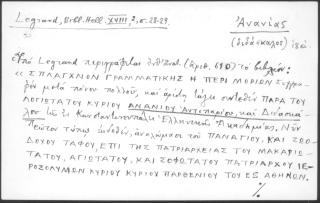 Legrand, Bibl. Hell. XVIII, 2, σ. 28-29.
Ἀνανίας
(διδάσκαλος)
Ὑπὸ Legrand περιγράφεται (ἀριθ. 690) τὸ βιβλίον:
« ΣΠΛΑΓΧΝΟΝ ΓΡΑΜΜΑΤΙΚΗΣ Ἢ ΠΕΡΙ ΜΟΡΙΩΝ
μετὰ πόνου πολλοῦ, καὶ συντεθὲν ΠΑΡΑ ΤΟΥ
ΛΟΓΙΩΤΑΤΟΥ ΚΥΡΙΟΥ ΑΝΑΝΙΟΥ Ἀντιπαρίου, καὶ Διδασκά-
λου τῆς ἐν Κωνσταντινουπόλει Ἑλληνικῆς Ἀκαδημίας. Νῦν
Πρῶτον τύποις ἐκδοθὲν, ἀναλώμασι τοῦ ΠΑΝΑΓΙΟΥ, ΚΑΙ ΖΩΟ-
ΔΟΧΟΥ ΤΑΦΟΥ, ΕΠΙ ΤΗΣ ΠΑΤΡΙΑΡΧΕΙΑΣ ΤΟΥ ΜΑΚΑΡΙΩ-
ΤΑΤΟΥ, ΑΓΙΩΤΑΤΟΥ, ΚΑΙ ΣΟΦΩΤΑΤΟΥ ΠΑΤΡΙΑΡΧΟΥ ΙΕΡΟ-
ΣΟΛΥΜΩΝ ΚΥΡΙΟΥ ΚΥΡΙΟΥ ΠΑΡΘΕΝΙΟΥ ΤΟΥ ΕΞ ΑΘΗΝΩΝ.
%